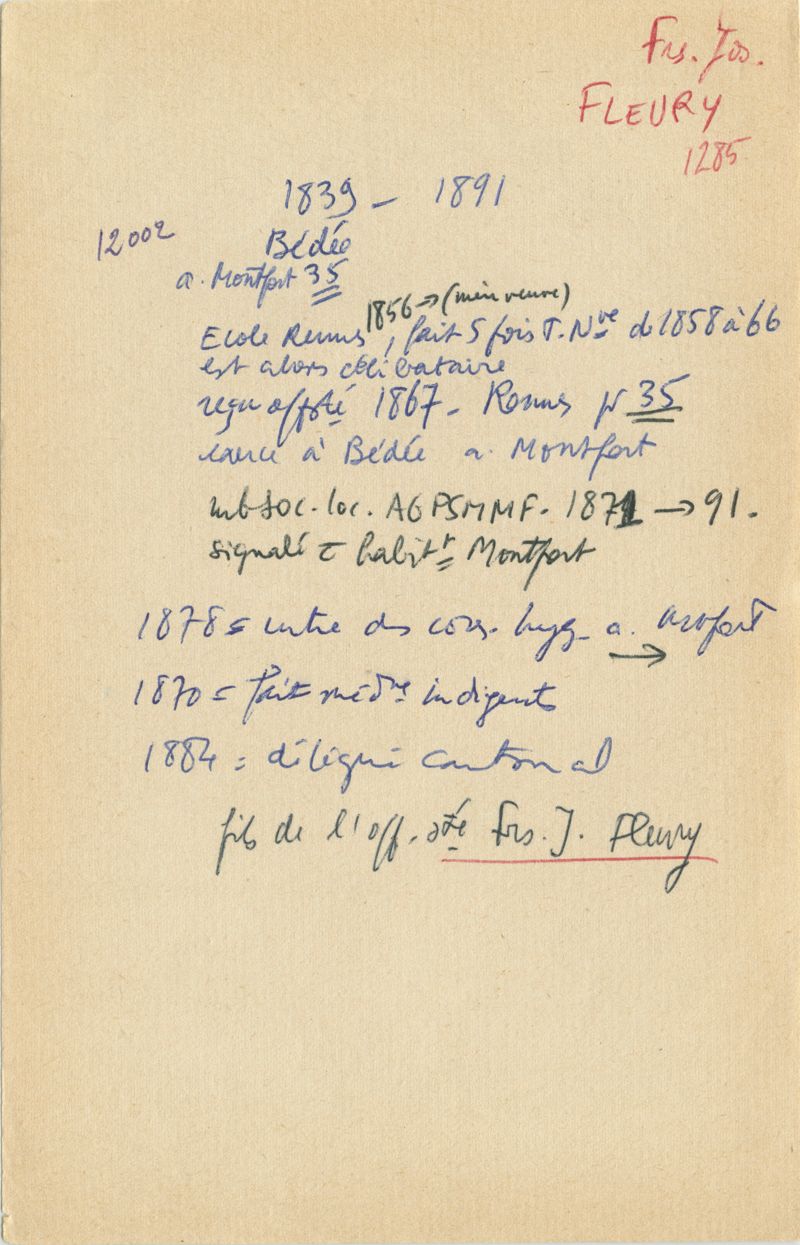 Frs. Jos.
FLEURY
1285
1839 – 1891
12002
Bédée
a. Montfort 35
1856 → (mère veuve)
Ecole Rennes, fait 5 fois T. Nve de 1858 à 66
est alors célibataire
reçu off sté 1867 – Rennes pr 35
exerce à Bédée a. Montfort
mb soc. loc. AGPSMMF. 1871 → 91.
signalé = habitt Montfort
1878 = entre ds cons. hyg. a. Montfort
→
1870 = fait médne indigents
1884 = délégué cantonal
fils de l'off. sté Frs. J. Fleury